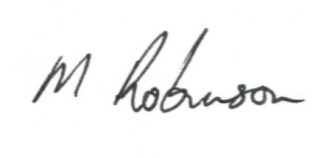 M Robinson